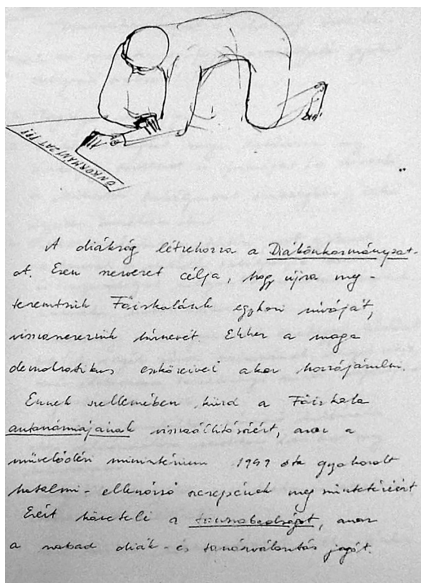 ÖNKORMÁNYZAT
A diákság létrehozza a Diákönkormányzat-
ot. Ezen szervezet célja, hogy újra meg-
teremtsük Főiskolánk egykori nívóját,
visszaszerezzük hírnevét. Ehhez a maga
demokratikus eszközeivel akar hozzájárulni.
Ennek szellemében küzd a Főiskola
autonómiájának visszaállításáért, azaz a
művelődési minisztérium 1949 óta gyakorolt
hatalmi-ellenőrző szerepének megszüntetéséért
Ezért követeli a tanszabadságot, azaz
a szabad diák- és tanárválasztás jogát.